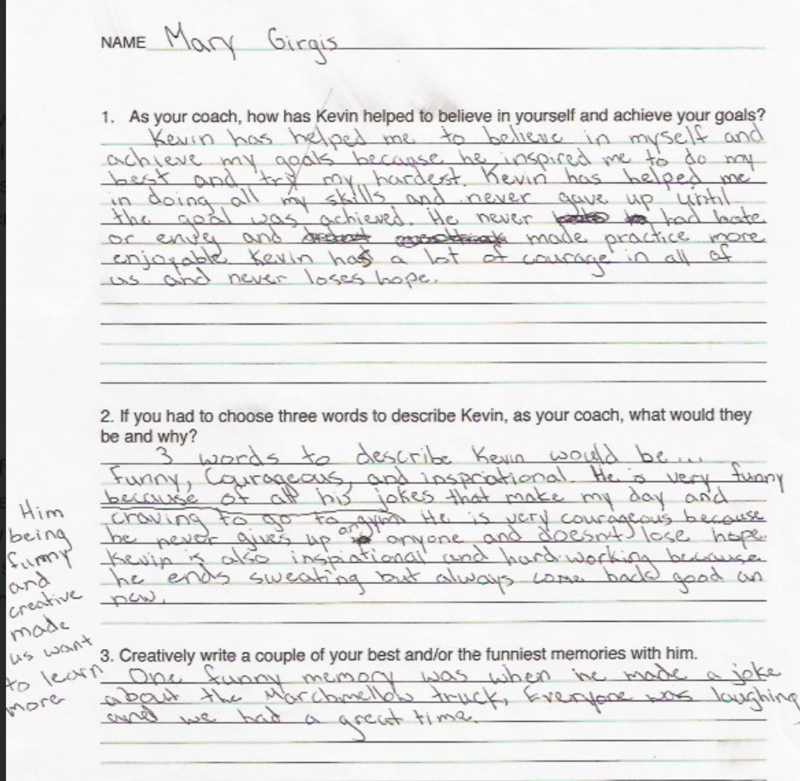 NAME Mary Girgis
1. As your coach, how has Kevin helped to believe in yourself and achieve your goals?
Kevin has helped me to believe in myself and
achieve my goals because he inspired me to do my
best and try my hardest. Kevin has helped me
in doing all my skills and never gave up until
the goal was achieved. He never had hate
or envey and made practice more
enjoyable. Kevin has a lot of courage in all of
us and never loses hope.
2. If you had to choose three words to describe Kevin, as your coach, what would they
be and why?
3 words to describe Kevin would be...
Funny, Courageous, and inspriational. He is very funny
because of all his jokes that make my day and
craving to go to gym He is very courageous because
he never gives up on anyone and doesn't lose hope.
Kevin is also inspirational and hard working because
he ends sweating but always come back good an
new.
Him
being
funny
and
creative
made
us want
to learn
more
3. Creatively write a couple of your best and/or the funniest memories with him.
One funny memory was when he made a joke
about the Marchmellow truck, Everyone was laughing
and we had a great time.